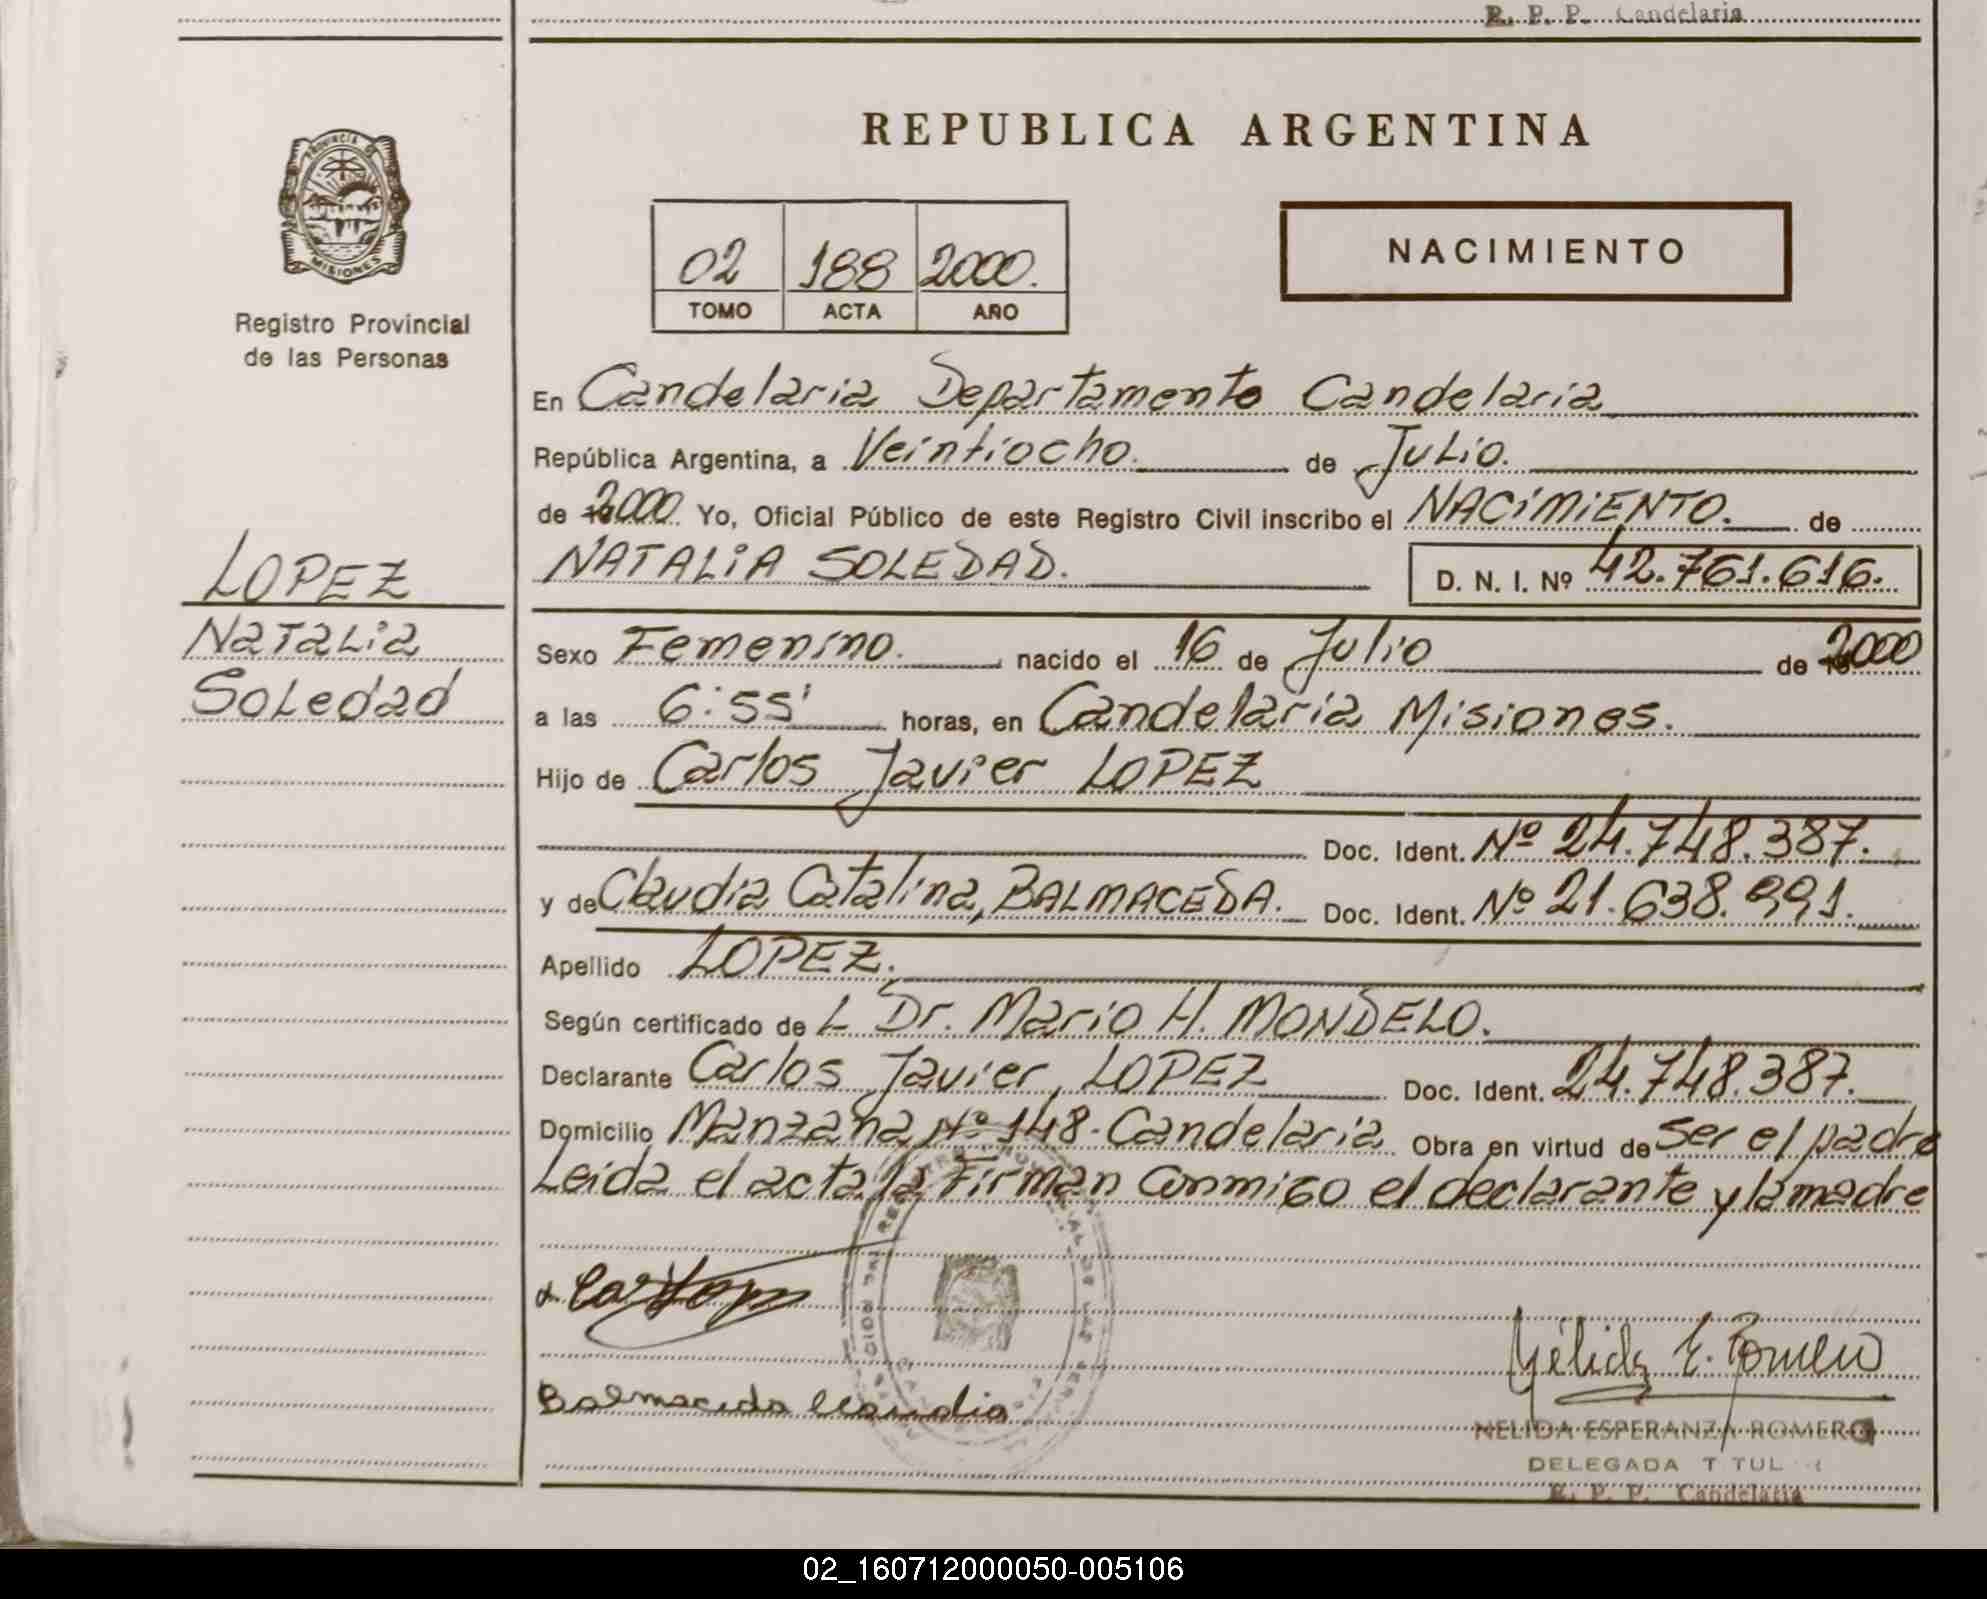 R. P. P. Candelaria
REPUBLICA ARGENTINA
PROVINCIA DE
MISIONES
Registro Provincial
de las Personas
02 188 2000.
TOMO ACTA AÑO
NACIMIENTO
En Candelaria Departamento Candelaria
República Argentina, a Veintiocho. de Julio.
de 2000 Yo, Oficial Público de este Registro Civil inscribo el NACIMIENTO. de
NATALIA SOLEDAD. D. N. I. Nº 42.761.616.
LOPEZ
Natalia
Soledad
Sexo Femenino. nacido el 16 de Julio de 2000
a las 6:55' horas, en Candelaria Misiones.
Hijo de Carlos Javier LOPEZ
Doc. Ident. Nº 24.748.387.
y de Claudia Catalina, BALMACEDA. Doc. Ident. Nº 21.638.991.
Apellido LOPEZ.
Según certificado de L Dr. Mario H. MONDELO.
Declarante Carlos Javier LOPEZ Doc. Ident. 24.748.387.
Domicilio Manzana Nº 148-Candelaria Obra en virtud de Ser el padre
Leida el acta la Firman Conmigo el declarante y la madre
Balmaceda Claudia
Nélida E. Romero
NELIDA ESPERANZA ROMERO
DELEGADA T TUL
R. P. P. Candelaria
02_160712000050-005106